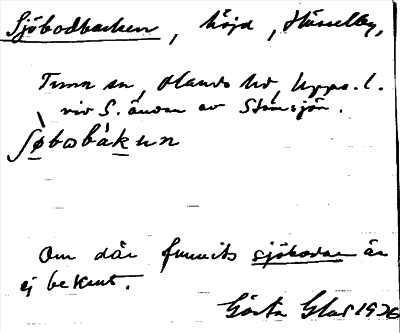 Sjöbodbacken, höjd, Hässelby,
Tuna sn, Olands hd, Upps. l.
vid S. ändan av Stensjön.
Om där funnits sjöbodar är
ej bekant.
Gösta 1926